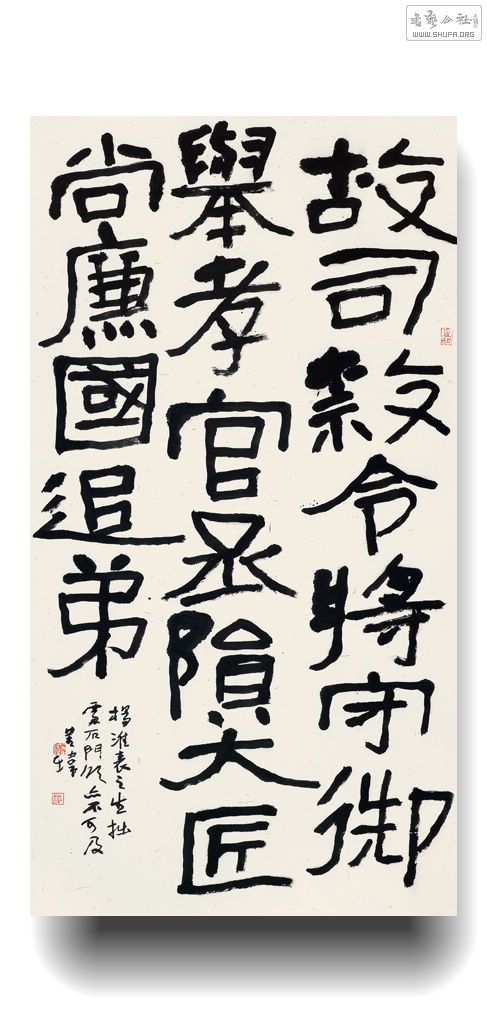 書藝公社
WWW.SHUFA.ORG
故司令將守御
舉孝官丞隕大匠
尚廉國追弟
楊淮表之生拙
雖石門頌亦不可及